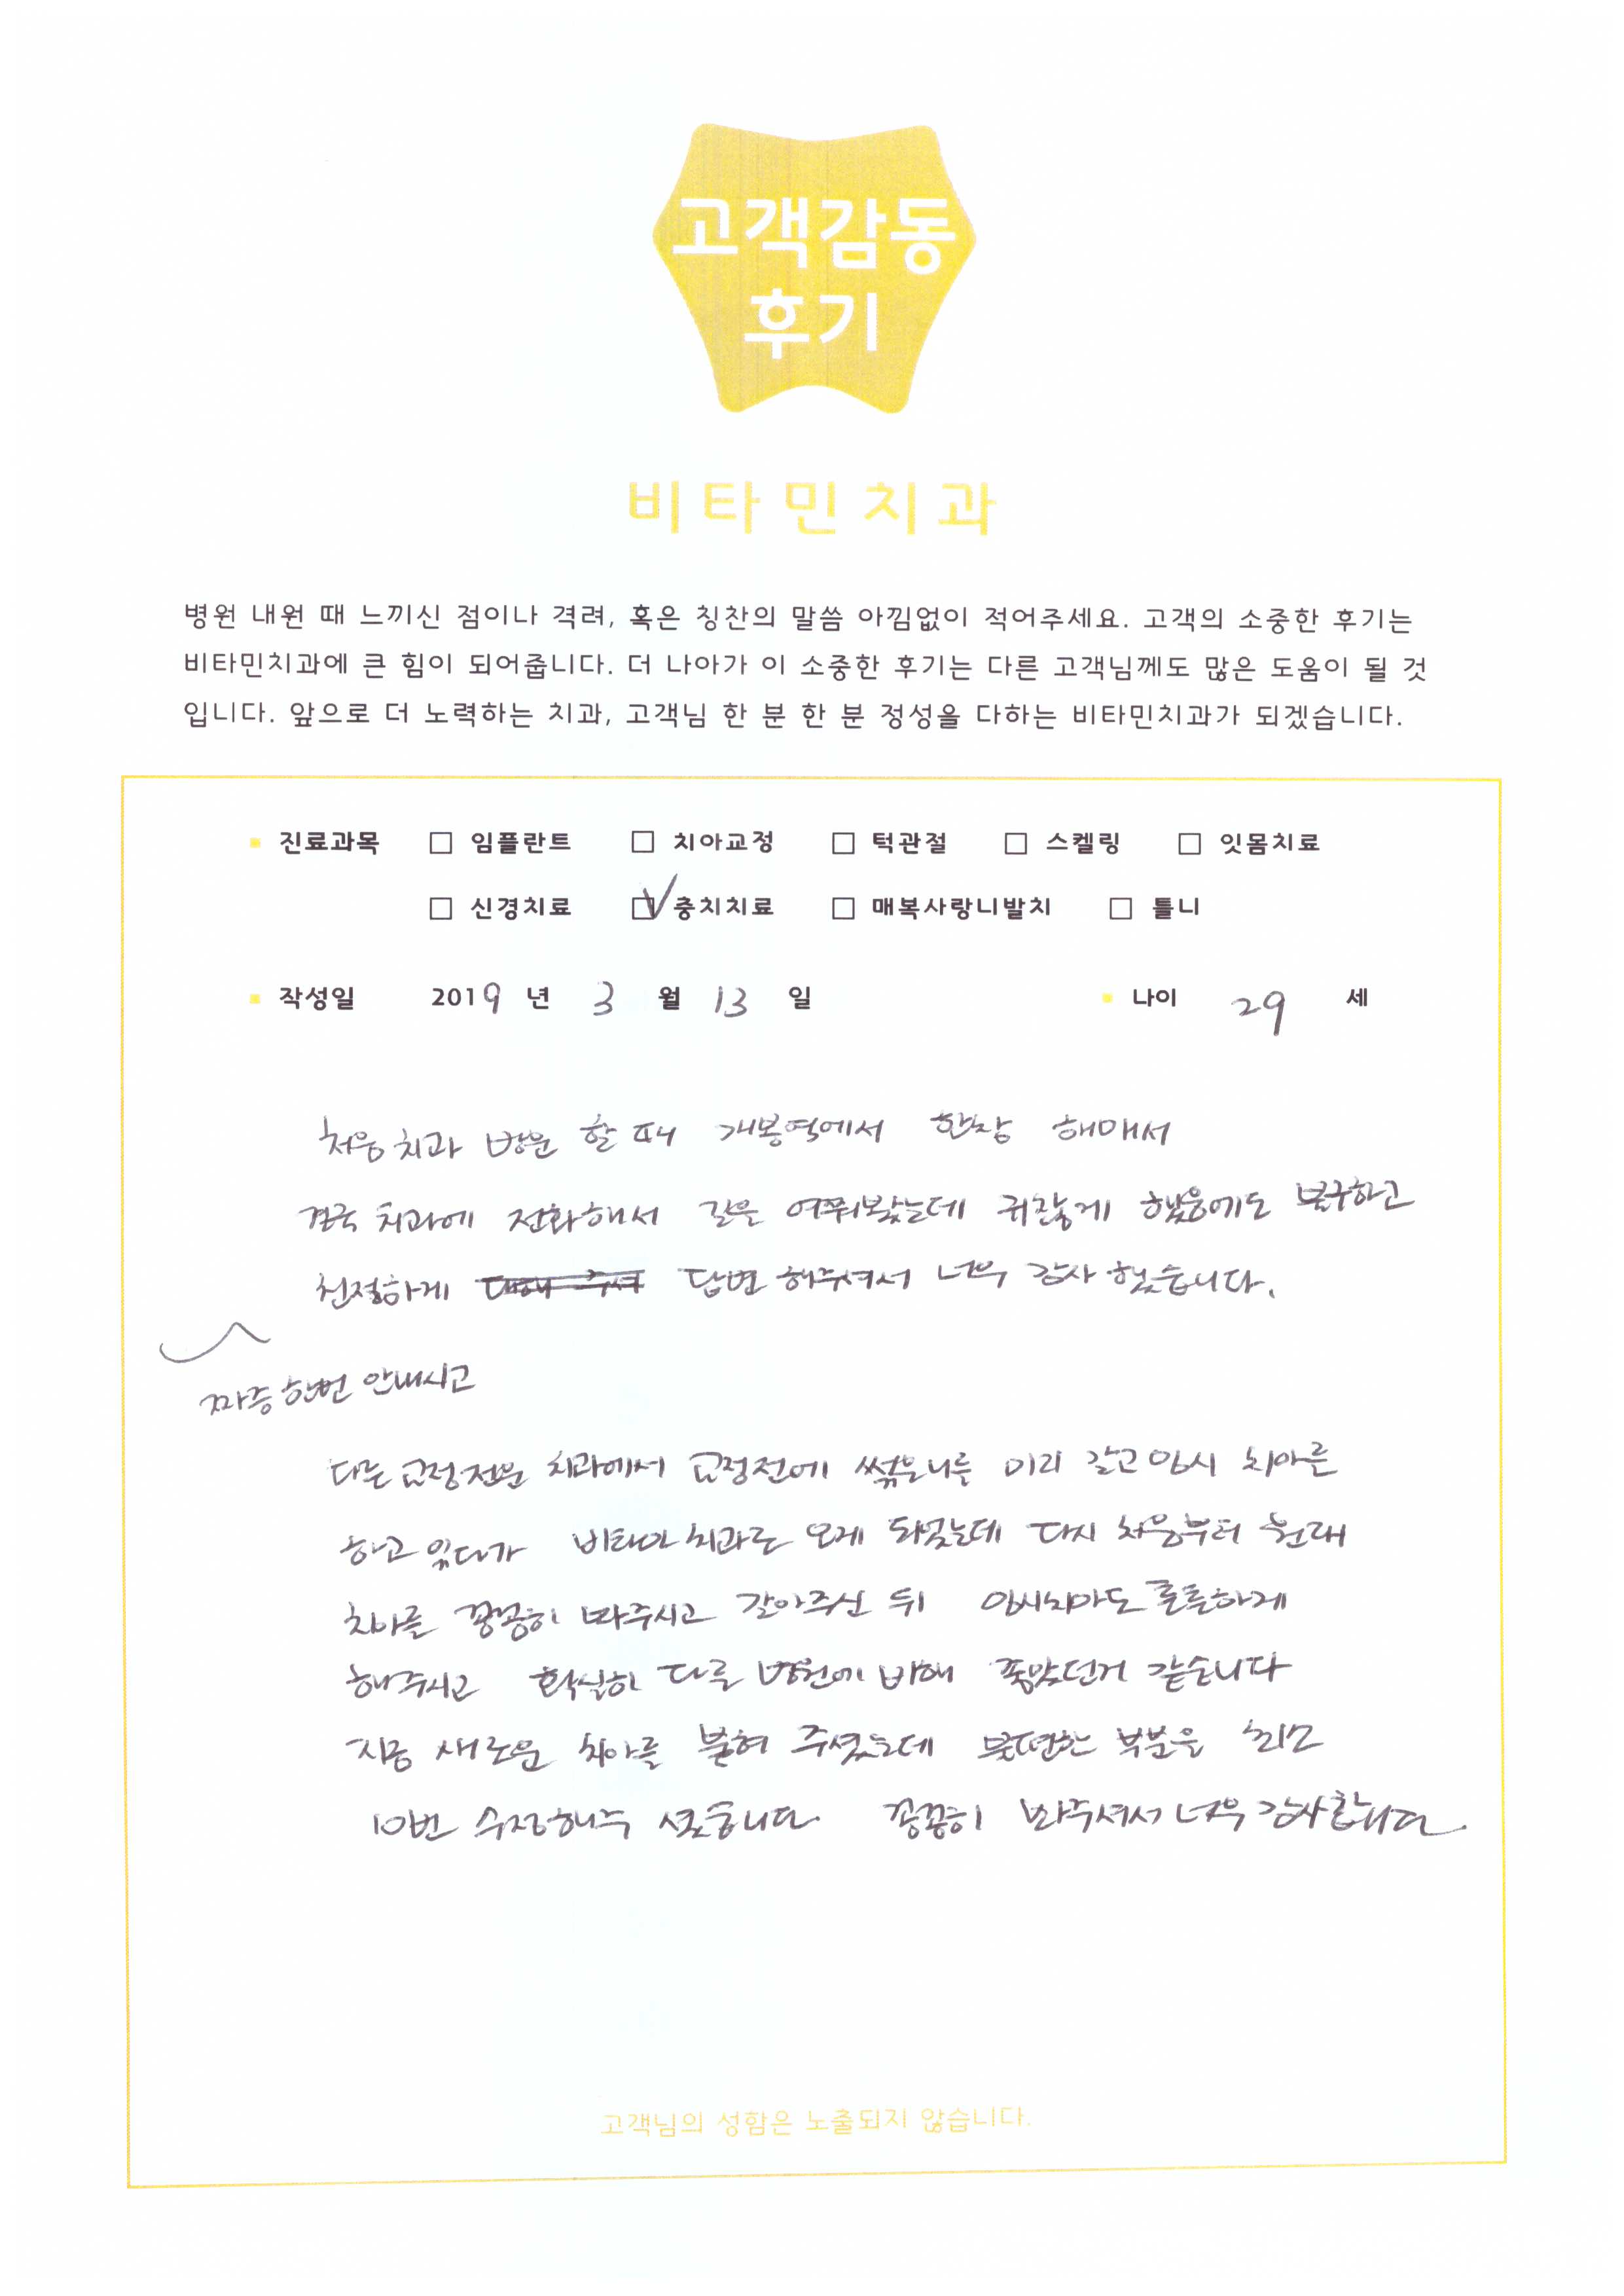 고객감동
후기
비타민치과
병원 내원 때 느끼신 점이나 격려, 혹은 칭찬의 말씀 아낌없이 적어주세요. 고객의 소중한 후기는
비타민치과에 큰 힘이 되어줍니다. 더 나아가 이 소중한 후기는 다른 고객님께도 많은 도움이 될 것
입니다. 앞으로 더 노력하는 치과, 고객님 한 분 한 분 정성을 다하는 비타민치과가 되겠습니다.
진료과목 임플란트 치아교정 턱관절 스켈링 잇몸치료
신경치료 충치치료 매복사랑니발치 틀니
작성일 2019 년 3 월 13 일 나이 29 세
처음 치과 방문 할 때 개봉역에서 한참 해매서
결국 치과에 전화해서 길을 여쭤봤는데 귀찮게 했음에도 불구하고
친절하게 답변 해주셔서 너무 감사 했습니다.
짜증 한번 안내시고
다른 교정전문 치과에서 교정전에 썩은니를 미리 갈고 임시 치아를
하고 있다가 비타민 치과로 오게 되었는데 다시 처음부터 원래
치아를 꼼꼼히 봐주시고 갈아주신 뒤 임시치아도 튼튼하게
해주시고 확실히 다른 병원에 비해 좋았던거 같습니다
지금 새로운 치아를 붙혀 주셨는데 불편한 부분을 최소
10번 수정해주 셨습니다 꼼꼼히 봐주셔서 너무 감사합니다.
고객님의 성함은 노출되지 않습니다.